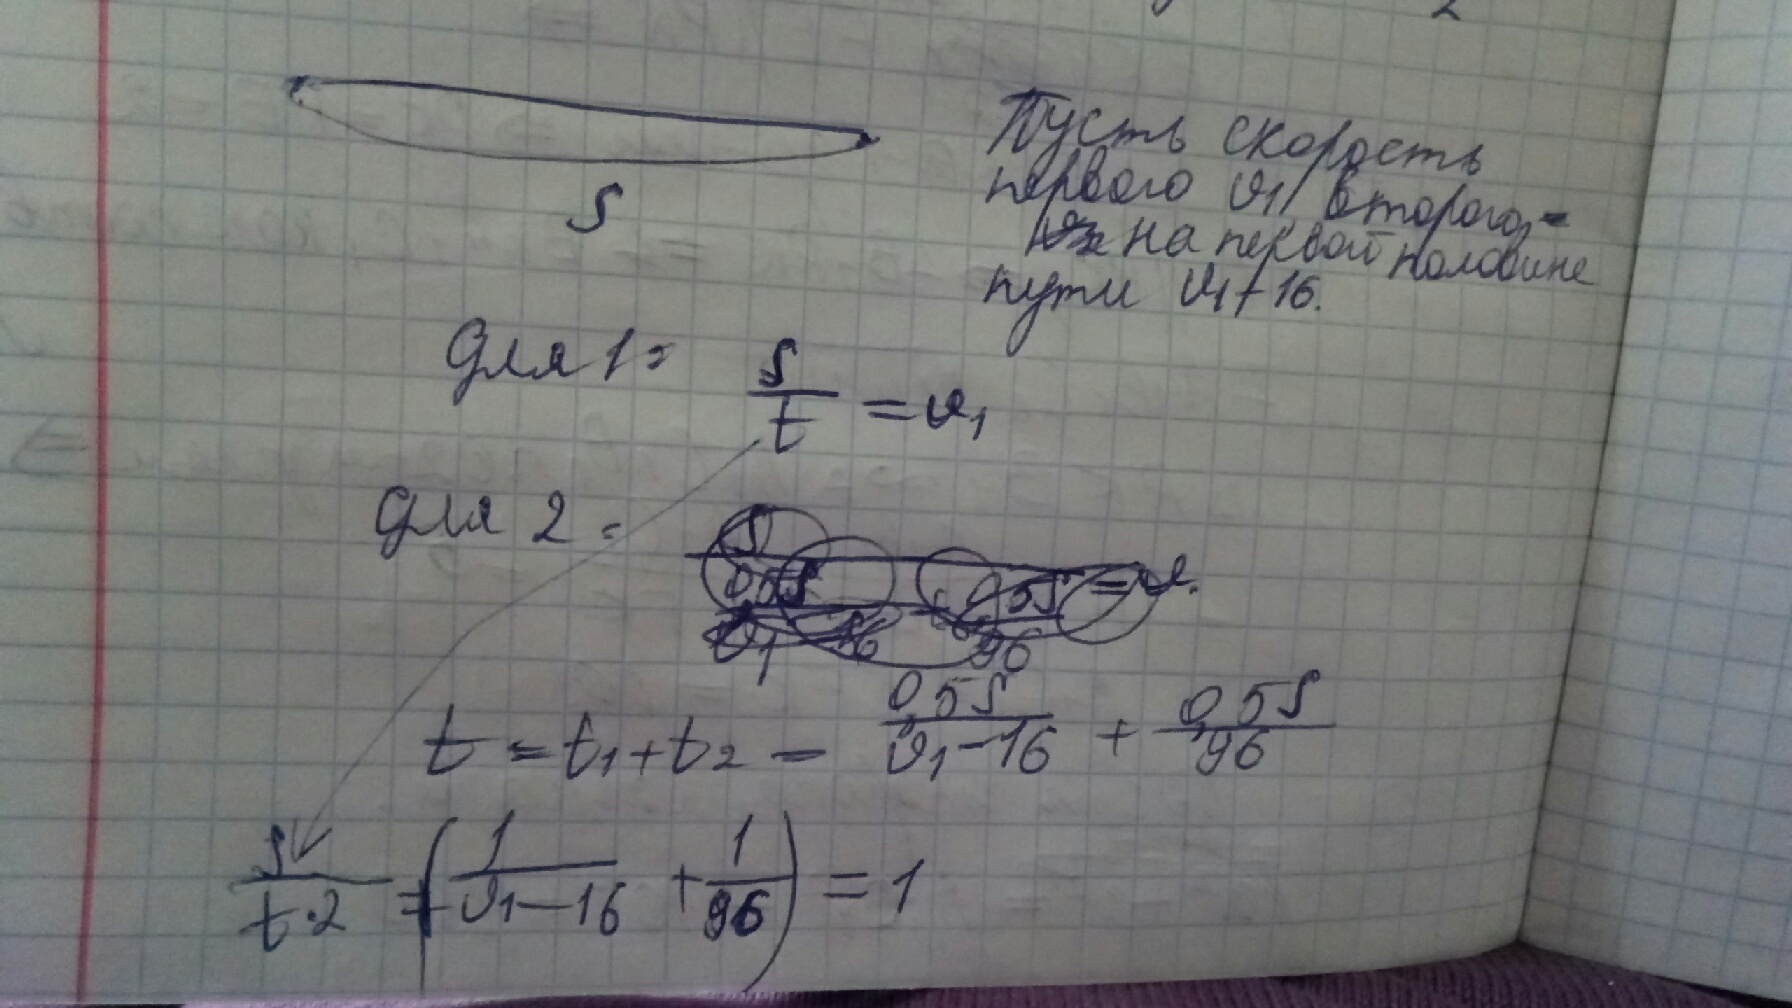 2
S
Пусть скорость
первого v1, второго -
на первой половине
пути v1-16.
Для 1: S/t = v1
Для 2:
t = t1 + t2 = 0,5S/(v1-16) + 0,5S/96
S/(t·2) = (1/(v1-16) + 1/96) = 1